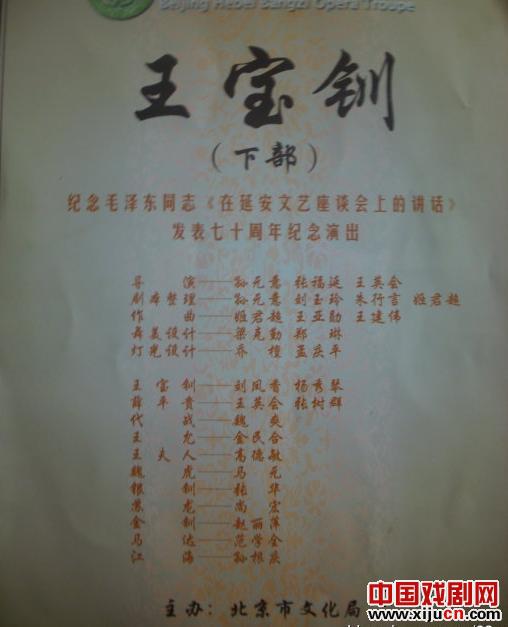 Beijing Hebei Bangzi Opera Troupe
王宝钏
(下部)
纪念毛泽东同志《在延安文艺座谈会上的讲话》
发表七十周年纪念演出
导演——孙元意 张福延 王英会
剧本整理——孙元意 刘玉玲 朱行言 姬君超
作曲——姬君超 王亚勋 王建伟
舞美设计——梁克勤 郑琳
灯光设计——乔檀 孟庆平
王宝钏——刘凤香 杨秀琴
薛平贵——王英会 张树群
代战——魏爽
王允——金民合
王夫人——高德敏
魏虎——马元
银——张华
苏龙——尚宏
金钏——赵丽萍
马达——范学全
江海——孙根庆
主办:北京市文化局
中国戏剧网
www.xijucn.com